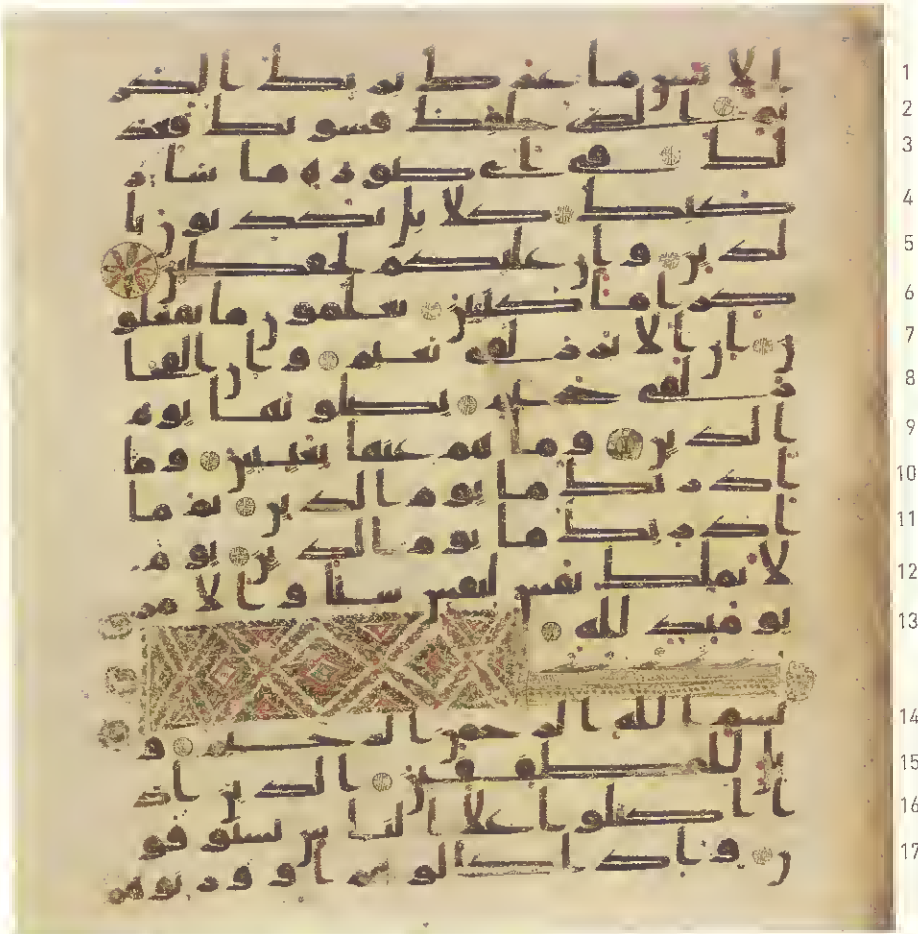 ا الانسن ما غرك بربك الكر 1
يم الذي خلقك فسويك فعد 2
لك في اي صورة ما شا ر 3
كبك كلا بل تكذبون با 4
لدين وان عليكم لحفظين 5
كراما كتبين يعلمون ما تفعلو 6
ن ان الابرار لفي نعيم وان الفجا 7
ر لفي جحيم يصلونها يوم 8
الدين وما هم عنها بغيبين وما 9
ادريك ما يوم الدين ثم ما 10
ادريك ما يوم الدين يوم 11
لا تملك نفس لنفس شيا والامر 12
يومئذ لله 13
بسم الله الرحمن الرحيم و 14
يل للمطففين الذين اذ 15
ا اكتالوا علا الناس يستوفو 16
ن واذا كالوهم او وزنوهم 17